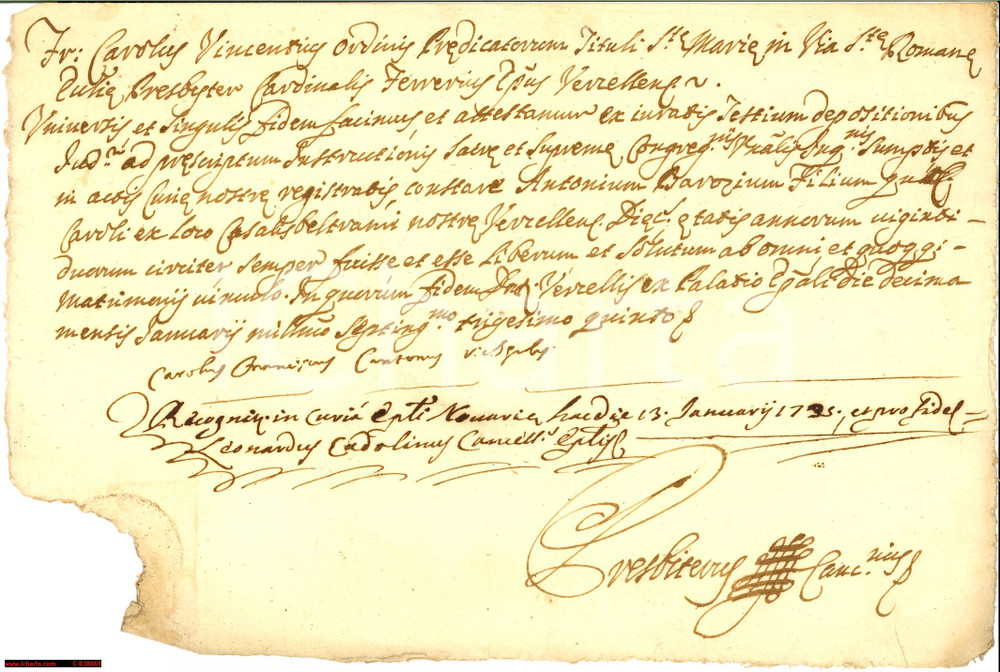 Fr: Carolus Vincentius Ordinis Prędicatorum Tituli Stę Marię in Via Stę Romanę
Ecclię Presbyter Cardinalis Ferrerius Epus Vercellens.
Universis et singulis fidem facimus et attestamur ex iuratis Testium depositionibus
ad pręscriptum Instructionis sacrę et supremę Congreg.nis Vnalis Inq.nis sumptis et
in actis Curię nostrę registratis, constare Antonium Filium
Caroli ex loco Casalisbeltrami nostrę Vercellens. Dięc. ętatis annorum viginti
duorum circiter semper fuisse et esse liberum et solutum ab omni et quoggi-
matrimonij vinculo. In quorum fidem Dat. Vercellis ex Palatio Epali die decima
mensis Januarij millmo septing.mo trigesimo quinto
Carolus Franciscus
Recognit. in Curia Epli Novarię hac die 13. Januarij 1735. et pro fide
Leonardus Cadolinus Cancell.s Eplis
Presbiterus Canc.rius
www.icharta.com C-030063
Charta